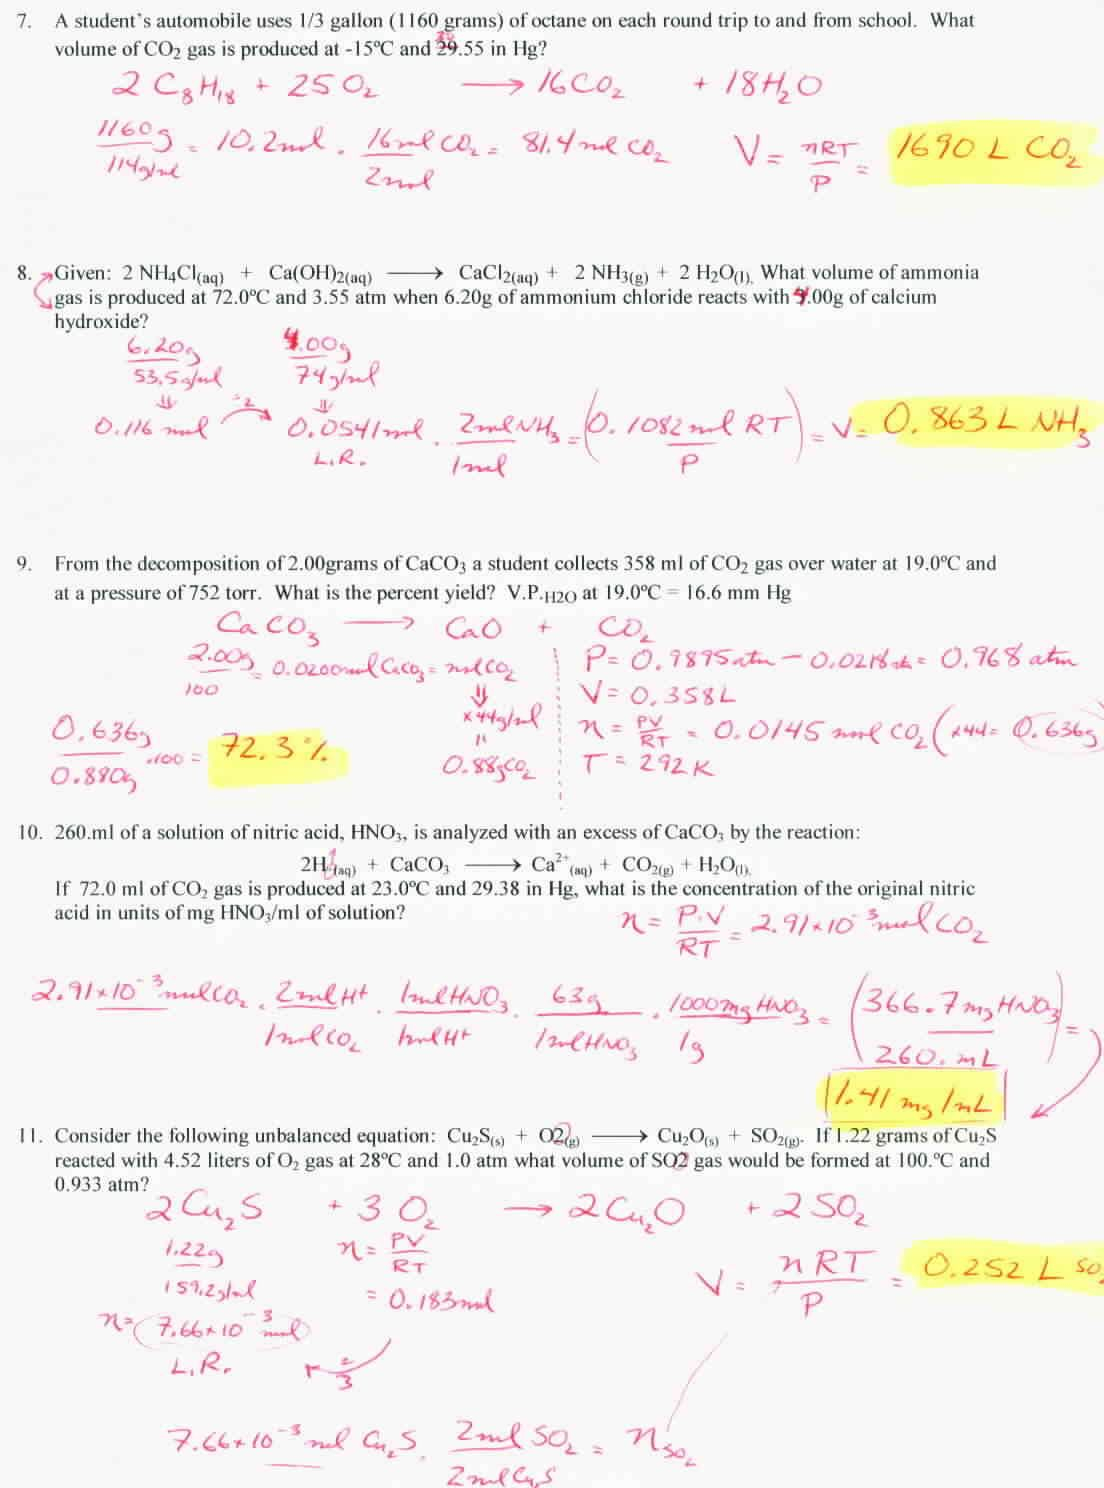 7. A student's automobile uses 1/3 gallon (1160 grams) of octane on each round trip to and from school. What
volume of CO2 gas is produced at -15ºC and 29.55 in Hg?
2 C8H18 + 25 O2 ⟶ 16CO2 + 18H2O
1160g/114g/mol = 10.2mol · 16mol CO2/2mol = 81.4 mol CO2 V = nRT/P = 1690 L CO2
8. Given: 2 NH4Cl(aq) + Ca(OH)2(aq) ⟶ CaCl2(aq) + 2 NH3(g) + 2 H2O(l). What volume of ammonia
gas is produced at 72.0ºC and 3.55 atm when 6.20g of ammonium chloride reacts with 4.00g of calcium
hydroxide?
6.20g/53.5g/mol 4.00g/74g/mol
⇓ ÷2 ⇓
0.116 mol 0.0541mol · 2molNH3/1mol = (0.1082mol RT/P) = V = 0.863 L NH3
L.R.
9. From the decomposition of 2.00grams of CaCO3 a student collects 358 ml of CO2 gas over water at 19.0ºC and
at a pressure of 752 torr. What is the percent yield? V.P.H2O at 19.0ºC = 16.6 mm Hg
CaCO3 ⟶ CaO + CO2
2.00g/100 = 0.0200mol CaCO3 = mol CO2 P = 0.9895atm – 0.0218atm = 0.968 atm
⇓ V = 0.358L
x44g/mol n = PV/RT = 0.0145 mol CO2 (x44 = 0.636g)
0.636g/0.880g ·100 = 72.3%
0.88gCO2 T = 292K
10. 260.ml of a solution of nitric acid, HNO3, is analyzed with an excess of CaCO3 by the reaction:
2H+(aq) + CaCO3 ⟶ Ca2+(aq) + CO2(g) + H2O(l).
If 72.0 ml of CO2 gas is produced at 23.0ºC and 29.38 in Hg, what is the concentration of the original nitric
acid in units of mg HNO3/ml of solution?
n = P·V/RT = 2.91x10-3 mol CO2
2.91x10-3 mol CO2 · 2mol H+/1mol CO2 · 1mol HNO3/1mol H+ · 63g/1mol HNO3 · 1000mg HNO3/1g = (366.7mg HNO3/260. mL) =
1.41 mg/mL
11. Consider the following unbalanced equation: Cu2S(s) + O2(g) ⟶ Cu2O(s) + SO2(g). If 1.22 grams of Cu2S
reacted with 4.52 liters of O2 gas at 28ºC and 1.0 atm what volume of SO2 gas would be formed at 100.ºC and
0.933 atm?
2Cu2S + 3 O2 → 2Cu2O + 2SO2
1.22g/159.2g/mol n = PV/RT V = nRT/P = 0.252 L SO
= 0.183mol
n= 7.66x10-3 mol
L.R. x 2/3
7.66x10-3 mol Cu2S · 2mol SO2/2mol Cu2S = nSO2